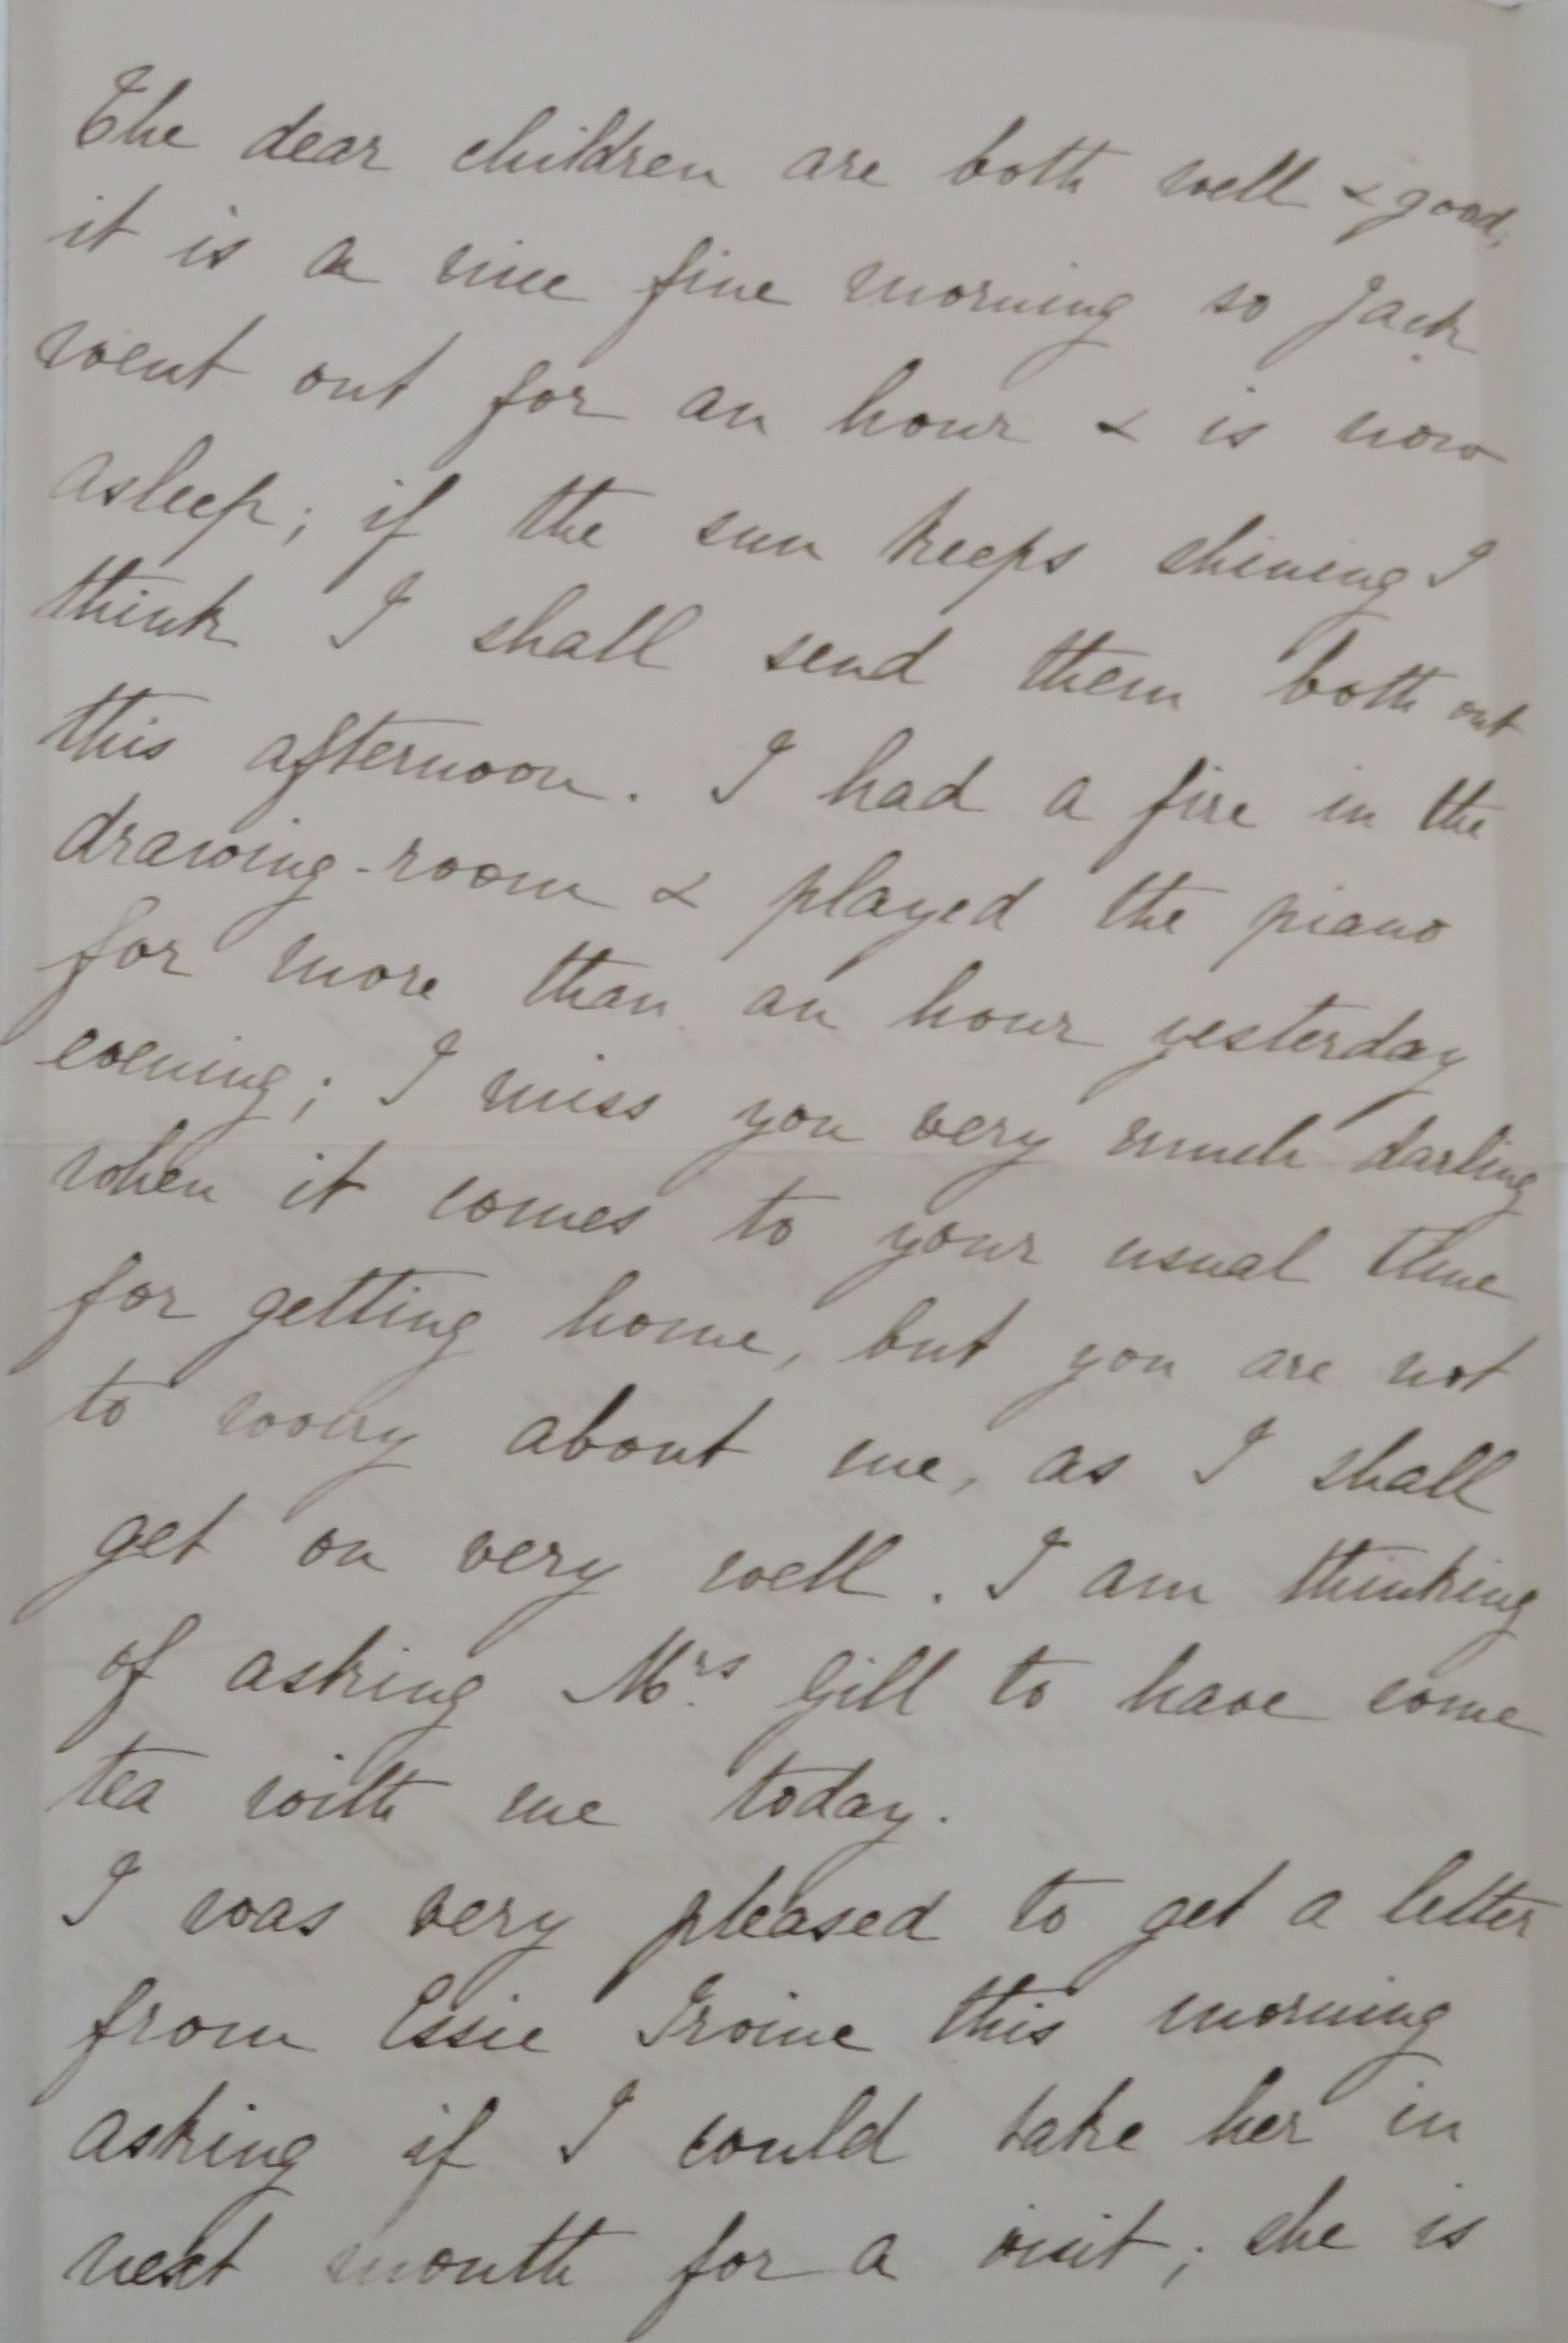 The dear children are both well & good,
it is a nice fine morning so Jack
went out for an hour & is now
asleep; if the sun keeps shining I
think I shall send them both out
this afternoon. I had a fire in the
drawing-room & played the piano
for more than an hour yesterday
evening; I miss you very much darling
when it comes to your usual time
for getting home, but you are not
to worry about me, as I shall
get on very well. I am thinking
of asking Mrs. Gill to have some
tea with me today.
I was very pleased to get a letter
from Essie Irvine this morning
asking if I could take her in
next month for a visit; she is